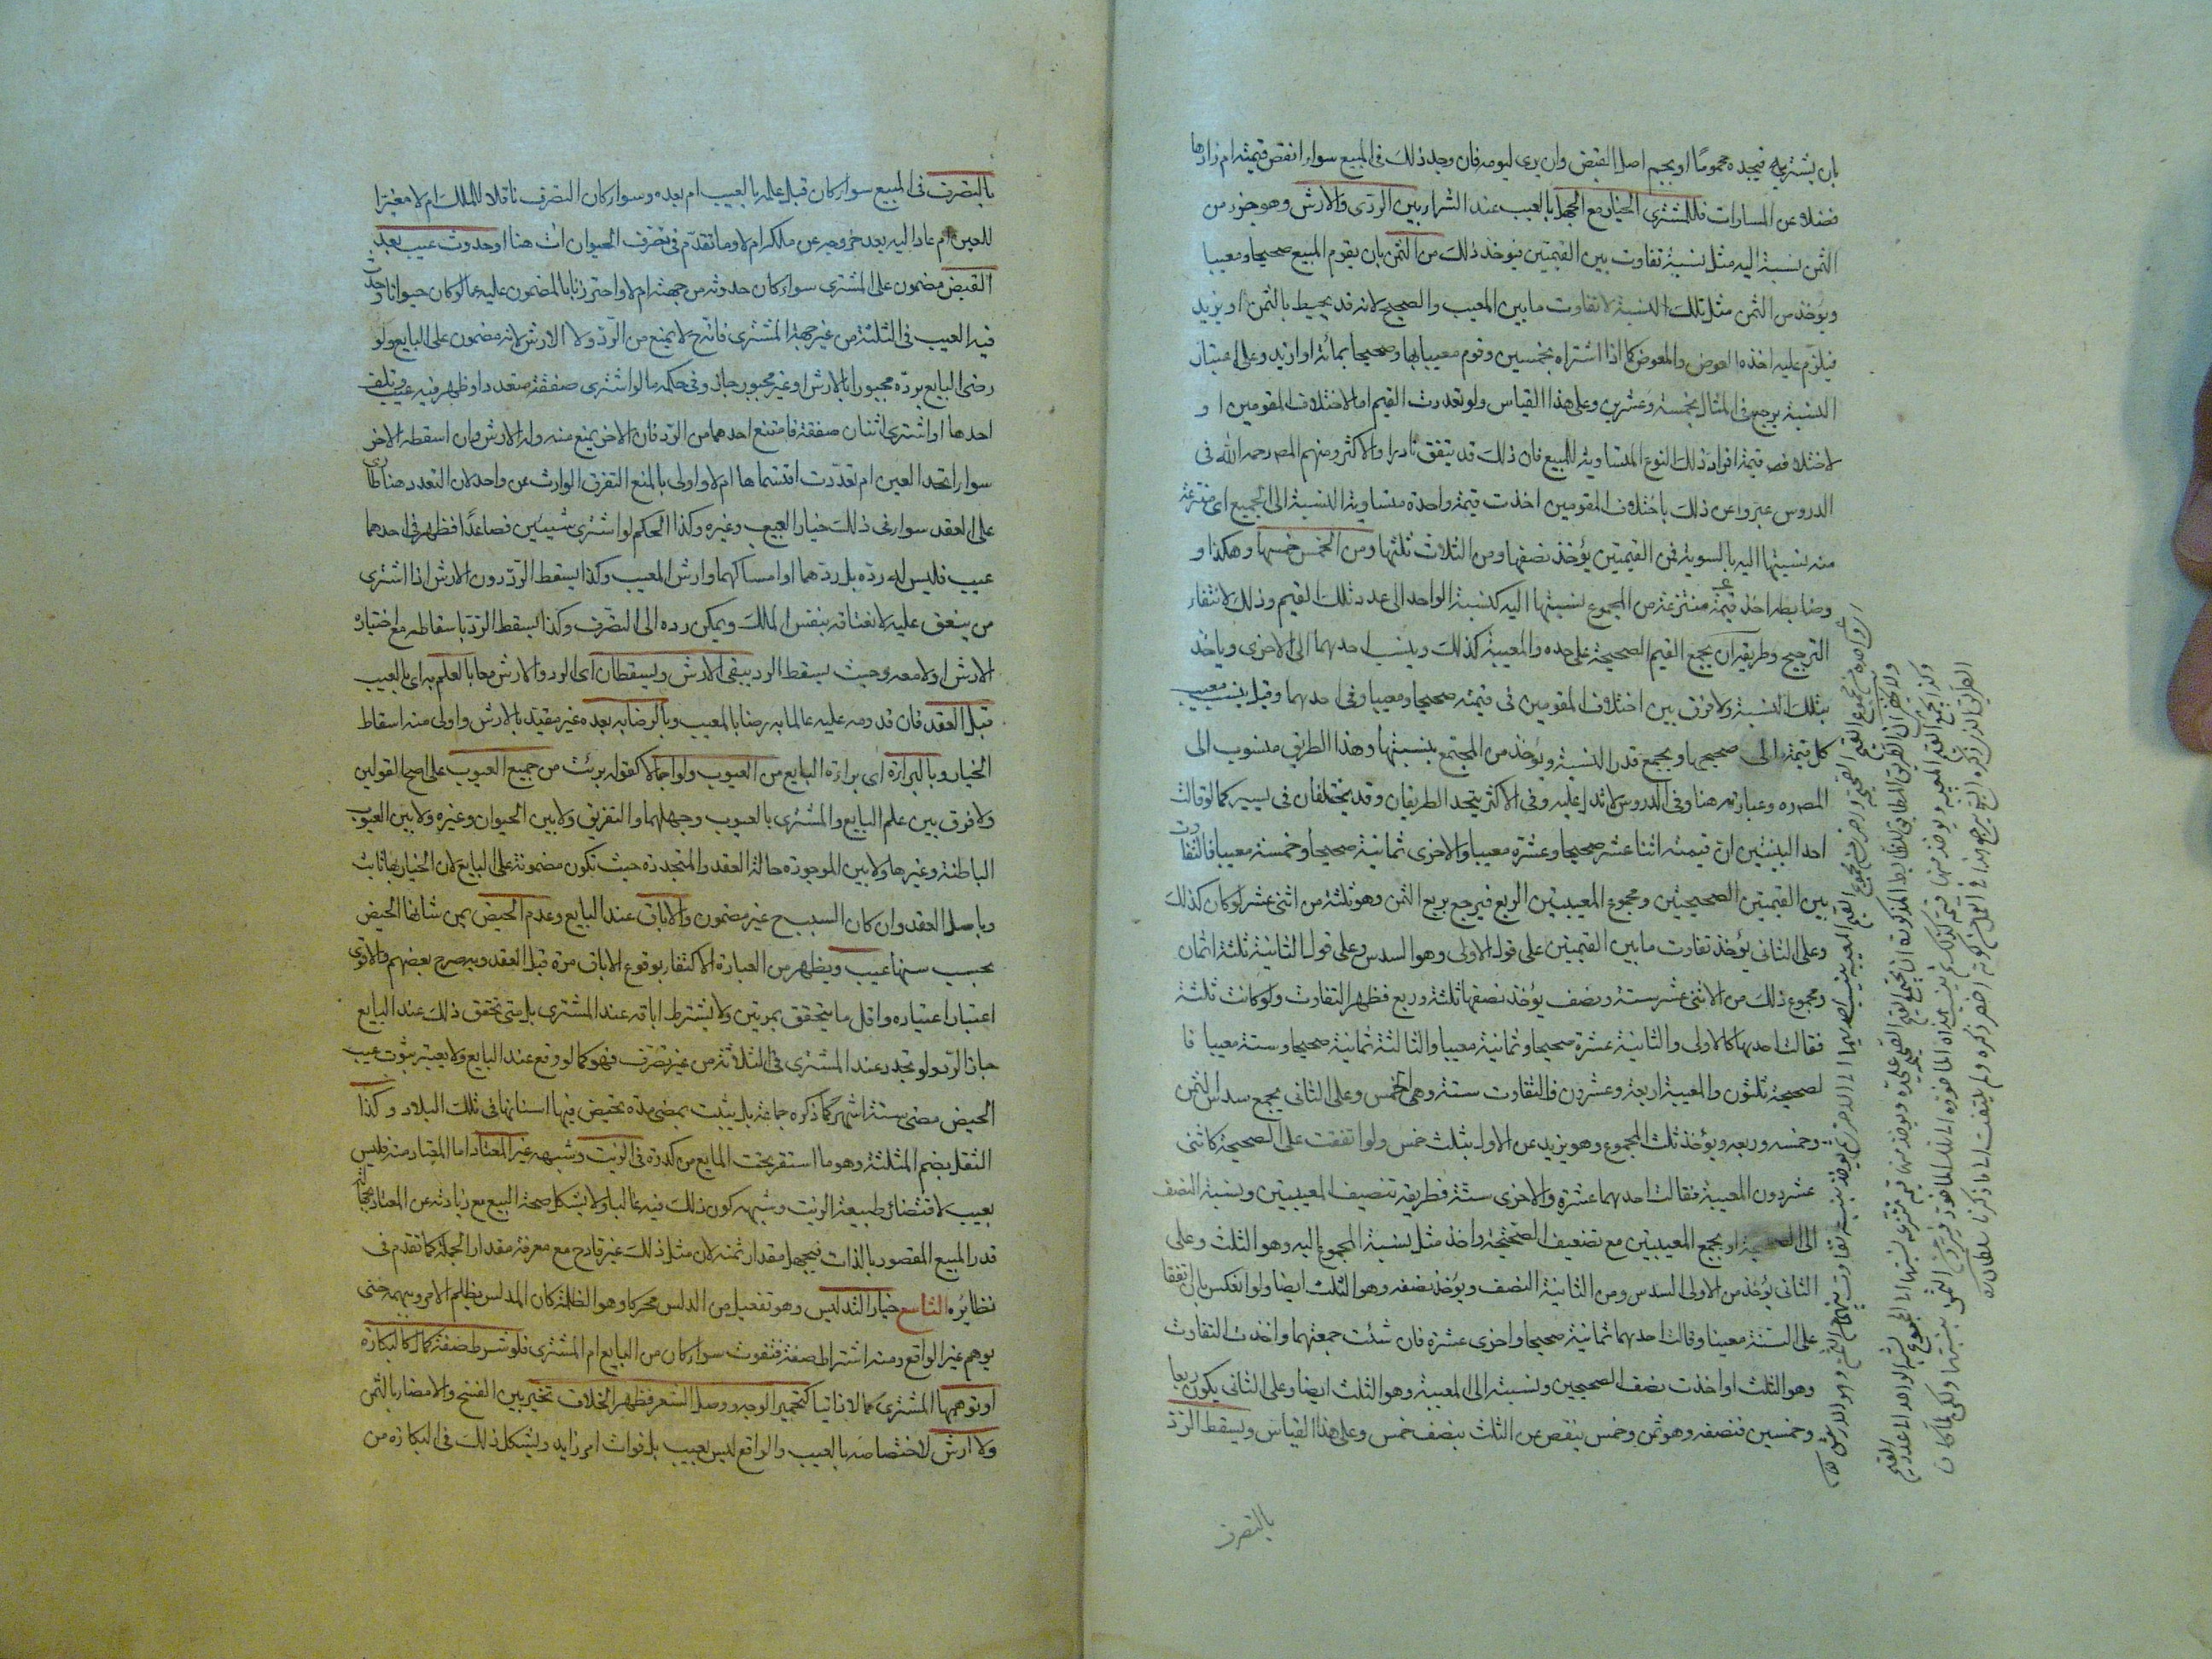 بان يشتريه فيجده محموما او يحم اصل القبض وان برى ليومه فان وجد ذلك فى المبيع سواء انقص قيمته ام زادها
فضلا عن المساوات فللمشترى الخيار مع الجهل بالعيب عند الشراء بين الرد والارش وهو جزء من
الثمن نسبته اليه مثل نسبة تفاوت بين القيمتين فيؤخذ ذلك من الثمن بان يقوم المبيع صحيحا ومعيبا
ويؤخذ من الثمن مثل تلك النسبة لا تفاوت ما بين المعيب والصحيح لانه قد يحيط بالثمن او يزيد
فيلزم عليه اخذه العوض والمعوض كما اذا اشتراه بخمسين وقوم معيبا بها وصحيحا بمائة او ازيد وعلى اعتبار
النسبة يرجع فى المثال بخمسة وعشرين وعلى هذا القياس ولو تعددت القيم اما لاختلاف المقومين او
لاختلاف قيمة افراد ذلك النوع المتساوية للمبيع فان ذلك قد يتفق نادرا والاكثر ومنهم المصر رحمه الله فى
الدروس عبروا عن ذلك باختلاف المقومين اخذت قيمة واحدة متساوية النسبة الى الجميع اى منتزعة
منه نسبتها اليه بالسوية فمن القيمتين يؤخذ نصفها ومن الثلاث ثلثها ومن الخمس خمسها وهكذا و
وضابطه اخذ قيمة منتزعة من المجموع نسبتها اليه كنسبة الواحد الى عدد تلك القيم وذلك لانتفاء
الترجيح وطريقه ان يجمع القيم الصحيحة على حده والمعيبة كذلك وينسب احدهما الى الاخرى وياخذ
بتلك النسبة ولا فرق بين اختلاف المقومين فى قيمته صحيحا ومعيبا وفى احدهما وقيل ينسب معيب
كل قيمة الى صحيحها ويجمع قدر النسبة ويؤخذ من المجتمع بنسبتها وهذا الطريق منسوب الى
المصره وعبارته هنا وفى الدروس لا تدل عليه وفى الاكثر يتحد الطريقان وقد يختلفان فى يسير كما لو قالت
احد البينتين ان قيمته اثنا عشر صحيحا وعشرة معيبا والاخرى ثمانية صحيحا وخمسة معيبا فالتفاوت
بين القيمتين الصحيحتين ومجموع المعيبتين الربع فيرجع بربع الثمن وهو ثلثة من اثنى عشر لو كان كذلك
وعلى الثانى يؤخذ تفاوت ما بين القيمتين على قول الاولى وهو السدس وعلى قول الثانية ثلثة اثمان
ومجموع ذلك من الاثنى عشر ستة ونصف يؤخذ نصفها ثلثة وربع فظهر التفاوت ولو كانت ثلثة
فقالت احديها كالاولى والثانية عشرة صحيحا وثمانية معيبا والثالثة ثمانية صحيحا وستة معيبا فا
لصحيحة ثلثون والمعيبة اربعة وعشرون والتفاوت ستة وهى الخمس وعلى الثانى يجمع سدس الثمن
وخمسه وربعه ويؤخذ ثلث المجموع وهو يزيد عن الاول بثلث خمس ولو اتفقت على الصحيحة كاثنى
عشر دون المعيبة فقالت احدهما عشرة والاخرى ستة فطريقه تنصيف المعيبتين ونسبة النصف
الى الصحيحة او يجمع المعيبتين مع تضعيف الصحيحة واخذ مثل نسبة المجموع اليه وهو الثلث وعلى
الثانى يؤخذ من الاولى السدس ومن الثانية النصف ويؤخذ نصفه وهو الثلث ايضا ولو انعكس بان اتفقتا
على الستة معيبا وقالت احدهما ثمانية صحيحا واخرى عشرة فان شئت جمعتهما واخذت التفاوت
وهو الثلث او اخذت نصف الصحيحين ونسبته الى المعيبة وهو الثلث ايضا وعلى الثانى يكون ربعا
وخمسين فنصفه وهو ثمن وخمس ينقص عن الثلث بنصف خمس وعلى هذا القياس ويسقط الرد
بالتصرف
بالتصرف فى المبيع سواء كان قبل علمه بالعيب ام بعده وسواء كان التصرف ناقلا للملك ام لا مغيرا
للعين ام عاد اليه بعد خروجه عن ملكه ام لا وما تقدم فى تصرف الحيوان ات هنا او حدوث عيب بعد
القبض مضمون على المشترى سواء كان حدوثه من جهته ام لا واحترزنا بالمضمون عليه عما لو كان حيوانا وحدث
فيه العيب فى الثلثة من غير جهة المشترى فانه ح لا يمنع من الرد ولا الارش لانه مضمون على البايع ولو
رضى البايع برده مجبورا بالارش او غير مجبور جاز وفى حكمه ما لو اشترى صفقة متعددا وظهر فيه عيب وتلف
احدها او اشترى اثنان صفقة فامتنع احدهما من الرد فان الاخر يمنع منه وله الارش وان اسقطه الاخر
سواء اتحد العين ام تعددت اقتسماها ام لا واولى بالمنع التفرق الوارث عن واحد لان التعدد هنا طارى
على العقد سواء فى ذلك خيار العيب وغيره وكذا الحكم لو اشترى شيئين فصاعدا فظهر فى احدهما
عيب فليس له رده بل ردهما او امساكهما وارش المعيب وكذا يسقط الرد دون الارش اذا اشترى
من ينعتق عليه لانعتاقه بنفس الملك ويمكن رده الى التصرف وكذا يسقط الرد باسقاطه مع اختياره
الارش او لا معه وحيث يسقط الرد يبقى الارش ويسقطان اى الرد والارش معا بالعلم به اى بالعيب
قبل العقد فان قدومه عليه عالما به رضا بالمعيب وبالرضا به بعده غير مقيد بالارش واولى منه اسقاط
الخيار وبالبراءة اى براءة البايع من العيوب ولو اجمالا كقوله برئت من جميع العيوب على اصح القولين
ولا فرق بين علم البايع والمشترى بالعيوب وجهلهما والتفريق ولا بين الحيوان وغيره ولا بين العيوب
الباطنة وغيرها ولا بين الموجودة حالة العقد والمتجددة حيث تكون مضمونة على البايع لان الخيار بها ثابت
وباصل العقد وان كان السبب ح غير مضمون والاباق عند البايع وعدم الحيض ممن شانها الحيض
بحسب سنها عيب ويظهر من العبارة الاكتفاء بوقوع الاباق مرة قبل العقد وبه صرح بعضهم والاقوى
اعتبار اعتياده واقل ما يتحقق بمرتين ولا يشترط اباقه عند المشترى بل متى تحقق ذلك عند البايع
جاز الرد ولو تجدد عند المشترى فى الثلاثة من غير تصرف فهو كما لو وقع عند البايع ولا يعتبر ثبوت عيب
الحيض مضى ستة اشهر كما ذكره جماعة بل يثبت بمضى مدة تحيض فيها اسنانها فى تلك البلاد وكذا
الثفل بضم المثلثة وهو ما استقر تحت المايع من كدرة فى الزيت وشبهه غير المعتاد اما المعتاد منه فليس
بعيب لاقتضاء طبيعة الزيت وشبهه كون ذلك فيه غالبا ولا يشكل صحة البيع مع زيادته عن المعتاد بجهالة
قدر المبيع المقصود بالذات فيجهل مقدار ثمنه لان مثل ذلك غير قادح مع معرفة مقدار الجملة كما تقدم فى
نظائره التاسع خيار التدليس وهو تفعيل من الدلس محركا وهو الظلمة كان المدلس يظلم الامر ويبهمه حتى
يوهم غير الواقع ومنه اشتراط صفة فتفوت سواء كان من البايع ام المشترى فلو شرط صفة كمال كالبكارة
او توهمها المشترى كمالا ذاتيا كتحمير الوجه ووصل الشعر فظهر الخلاف تخير بين الفسخ والامضاء بالثمن
ولا ارش لاختصاصه بالعيب والواقع ليس بعيب بل فوات امر زايد ويشكل ذلك فى البكارة من